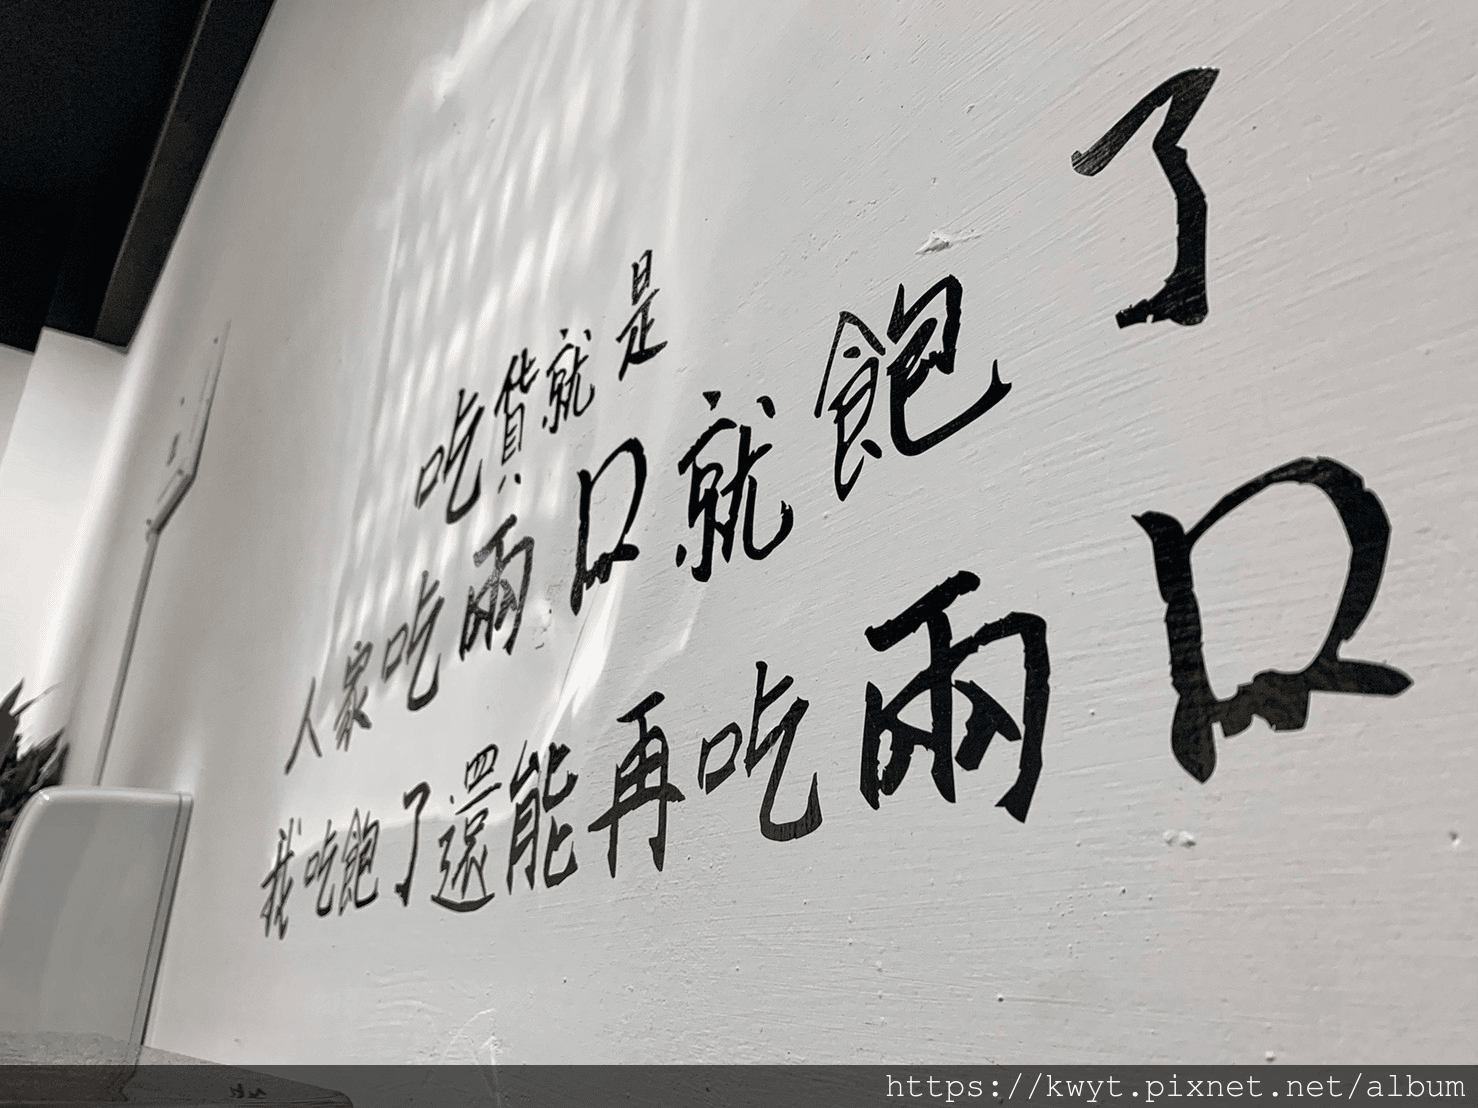 吃貨就是
人家吃兩口就飽了
我吃飽了還能再吃兩口
https://kwyt.pixnet.net/album